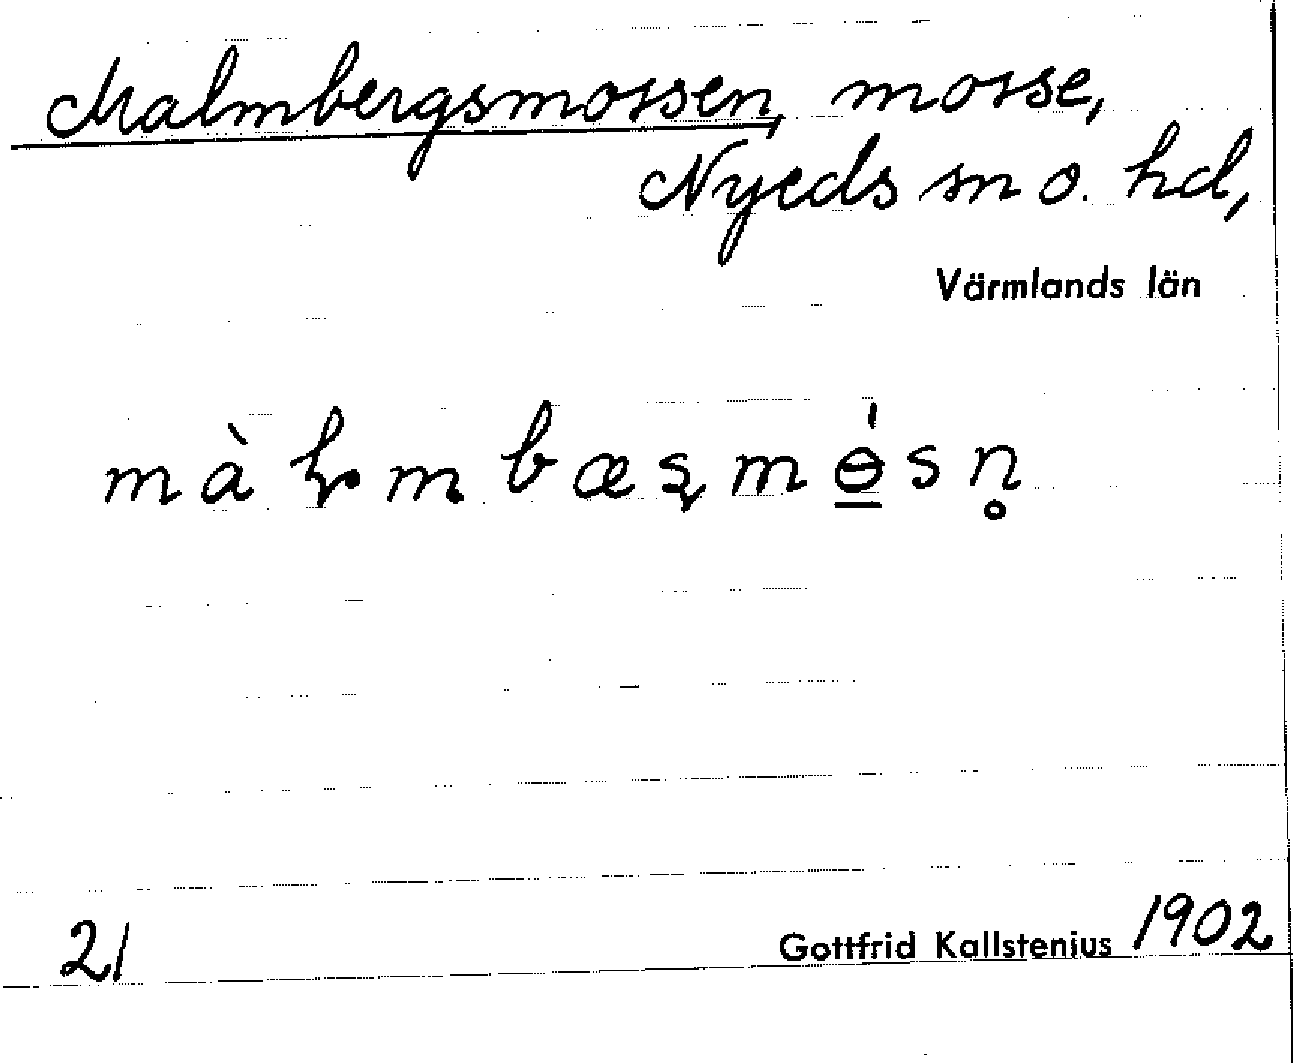 Malmbergsmossen, mosse,
Nyeds sn o. hd,
Värmlands län
màɫm bæʂmɵ́sn̥
21 Gottfrid Kallstenius 1902